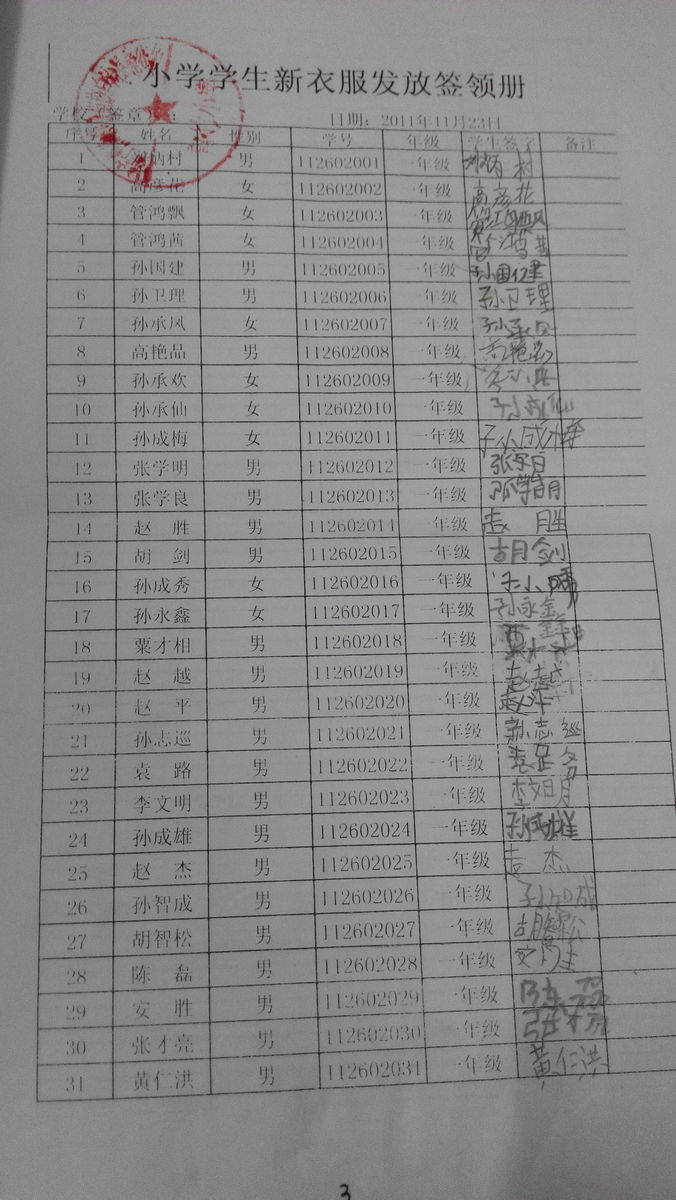 小学学生新衣服发放签领册
学校（签章）： 日期：2011年11月23日
序号 姓名 性别 学号 年级 学生签字 备注
1 炳村 男 112602001 一年级 炳村
2 高彦花 女 112602002 一年级 高彦花
3 管鸿飘 女 112602003 一年级
4 管鸿茜 女 112602004 一年级
5 孙国建 男 112602005 一年级 孙国建
6 孙卫理 男 112602006 一年级 孙卫理
7 孙承凤 女 112602007 一年级 孙承
8 高艳品 男 112602008 一年级 高艳
9 孙承欢 女 112602009 一年级
10 孙承仙 女 112602010 一年级 孙承仙
11 孙成梅 女 112602011 一年级 孙成梅
12 张学明 男 112602012 一年级 张学
13 张学良 男 112602013 一年级
14 赵 胜 男 112602014 一年级 胜
15 胡 剑 男 112602015 一年级 胡剑
16 孙成秀 女 112602016 一年级
17 孙永鑫 女 112602017 一年级 孙永鑫
18 粟才相 男 112602018 一年级
19 赵 越 男 112602019 一年级 赵越
20 赵 平 男 112602020 一年级 赵平
21 孙志巡 男 112602021 一年级 孙志巡
22 袁 路 男 112602022 一年级
23 李文明 男 112602023 一年级 李文明
24 孙成雄 男 112602024 一年级 孙成雄
25 赵 杰 男 112602025 一年级 杰
26 孙智成 男 112602026 一年级 孙智成
27 胡智松 男 112602027 一年级 胡智松
28 陈 磊 男 112602028 一年级
29 安 胜 男 112602029 一年级
30 张才亮 男 112602030 一年级 张才
31 黄仁洪 男 112602031 一年级 黄仁洪
3